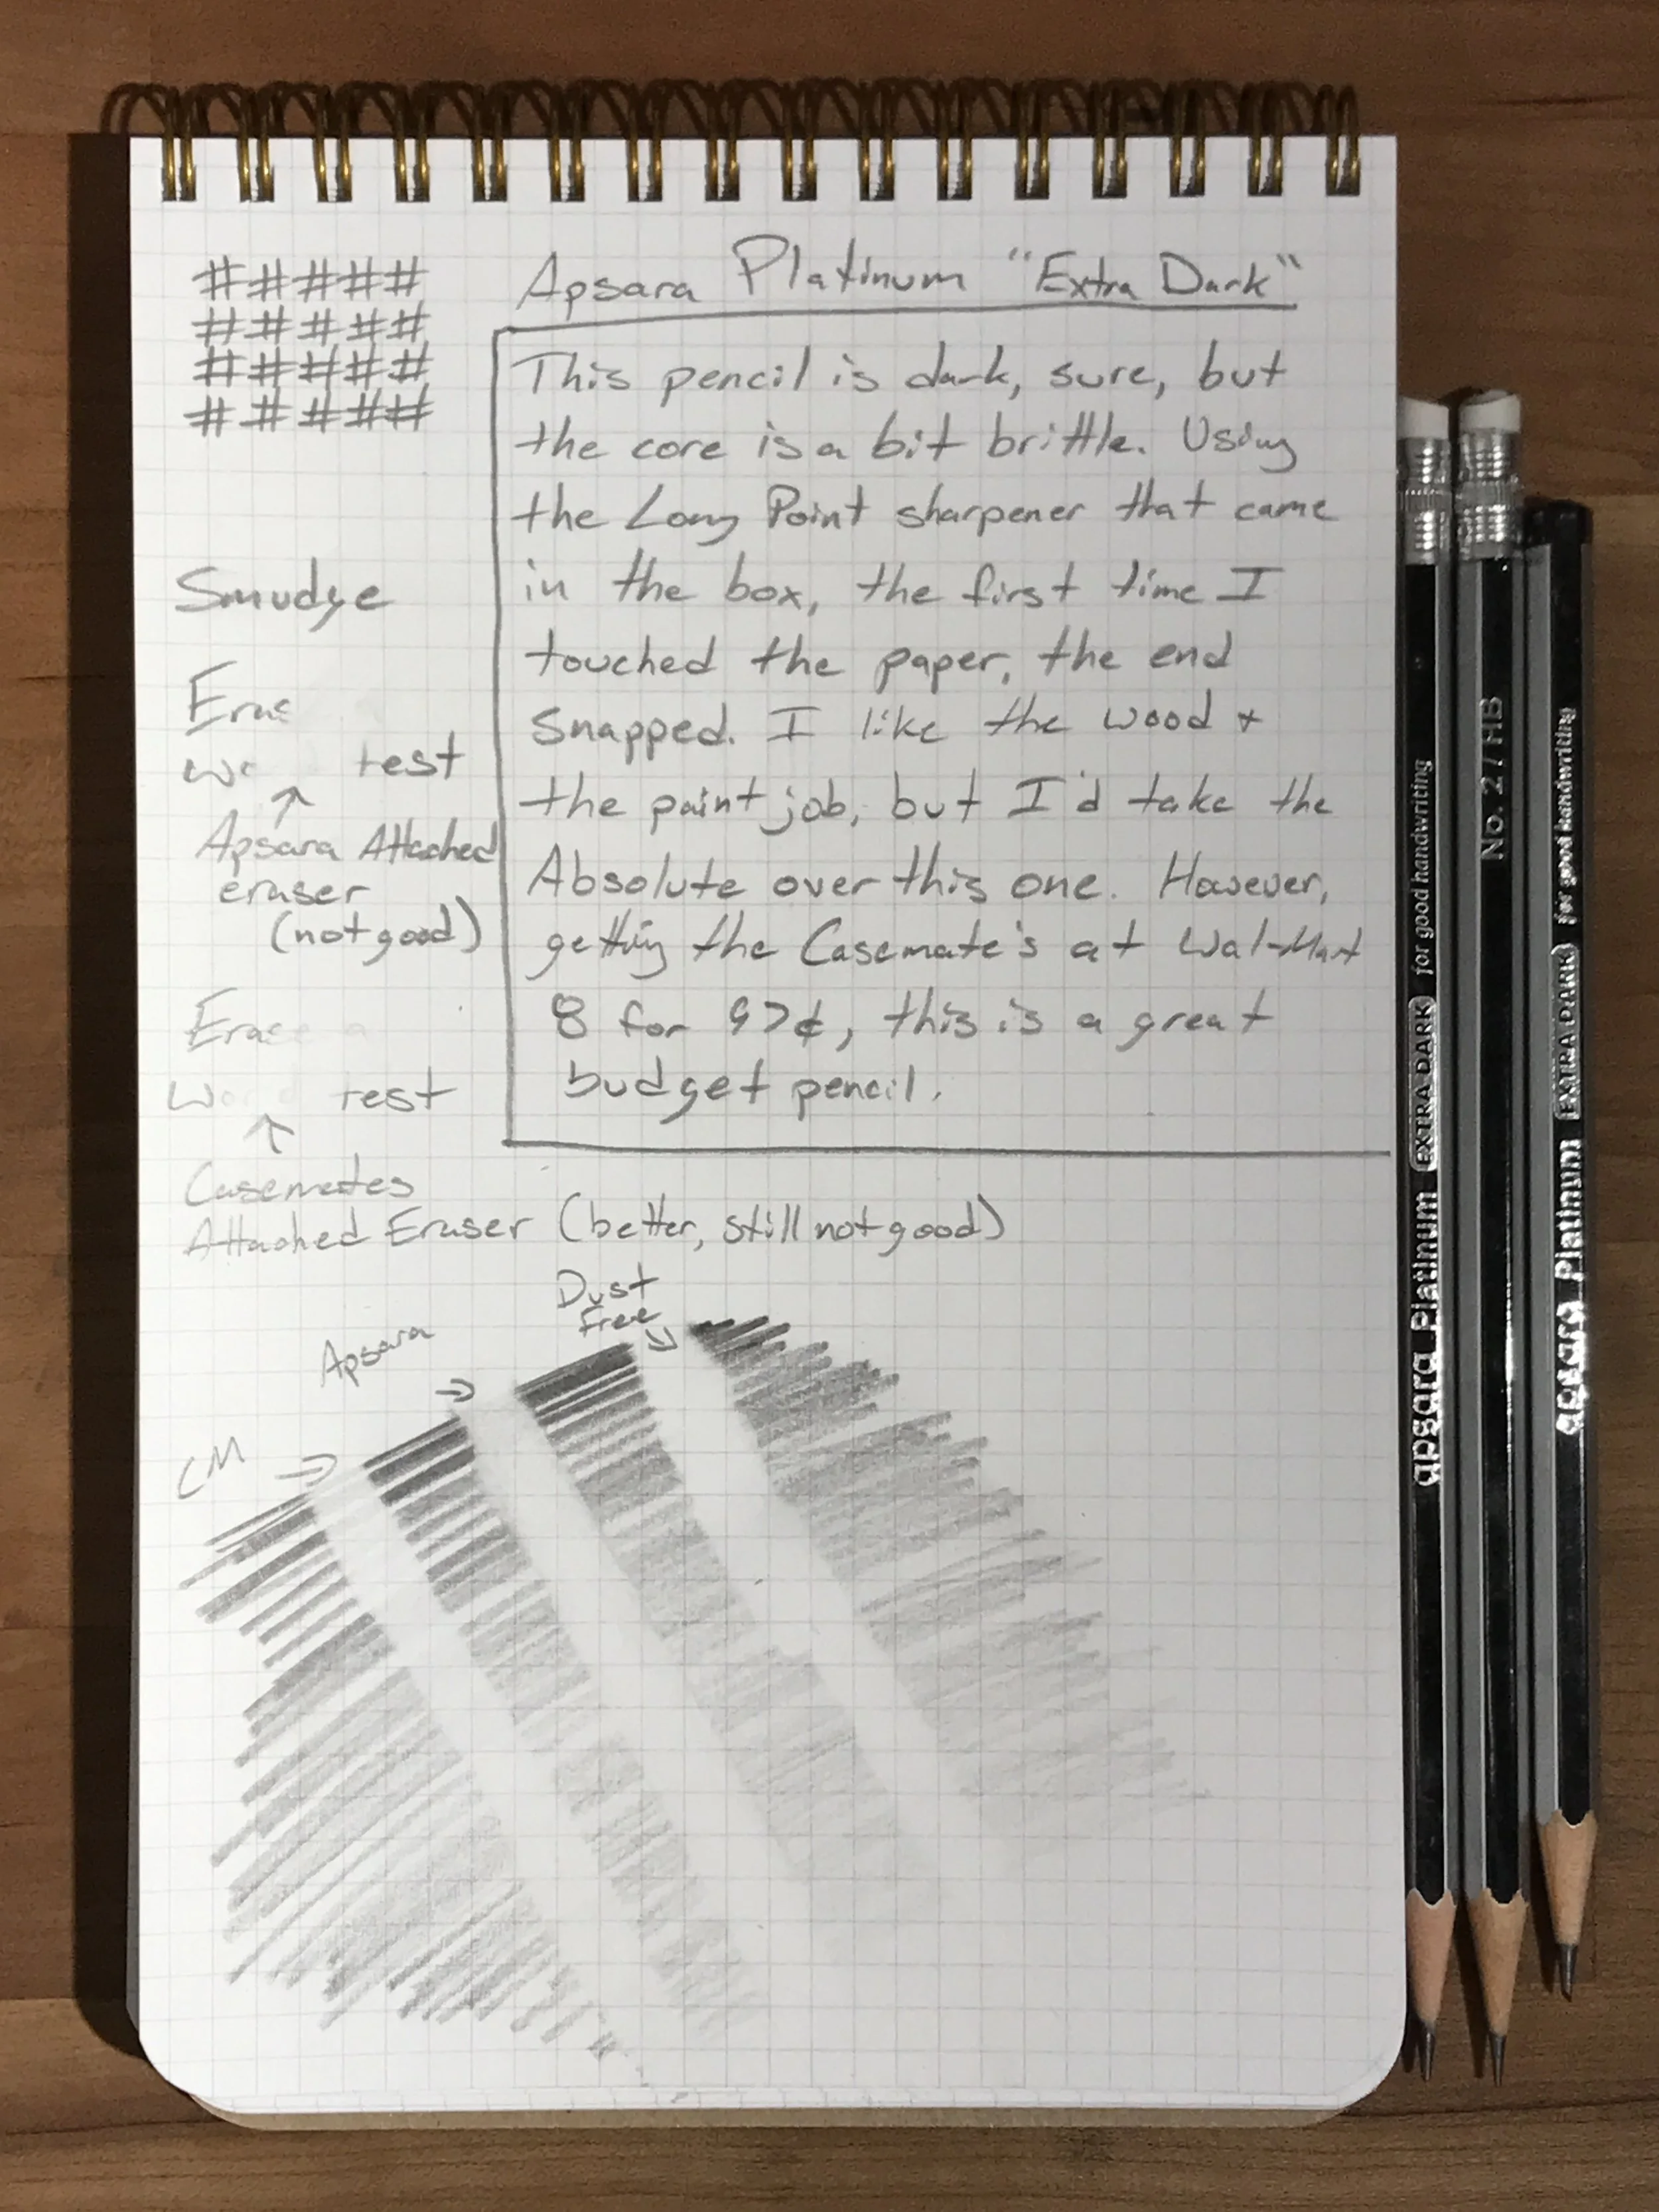 # # # # #
# # # # #
# # # # #
# # # # #
Apsara Platinum "Extra Dark"
This pencil is dark, sure, but
the core is a bit brittle. Using
the Long Point sharpener that came
in the box, the first time I
touched the paper, the end
snapped. I like the wood +
the paint job, but I'd take the
Absolute over this one. However,
getting the Casemate's at Wal-Mart
8 for 97¢, this is a great
budget pencil.
Smudge
Eras
Wo test
Apsara Attached
eraser
(not good)
Erase a
Word test
Casemates
Attached Eraser (better, still not good)
Dust
Free
Apsara
CM
apsara Platinum EXTRA DARK for good handwriting
No. 2 / HB
apsara Platinum EXTRA DARK for good handwriting